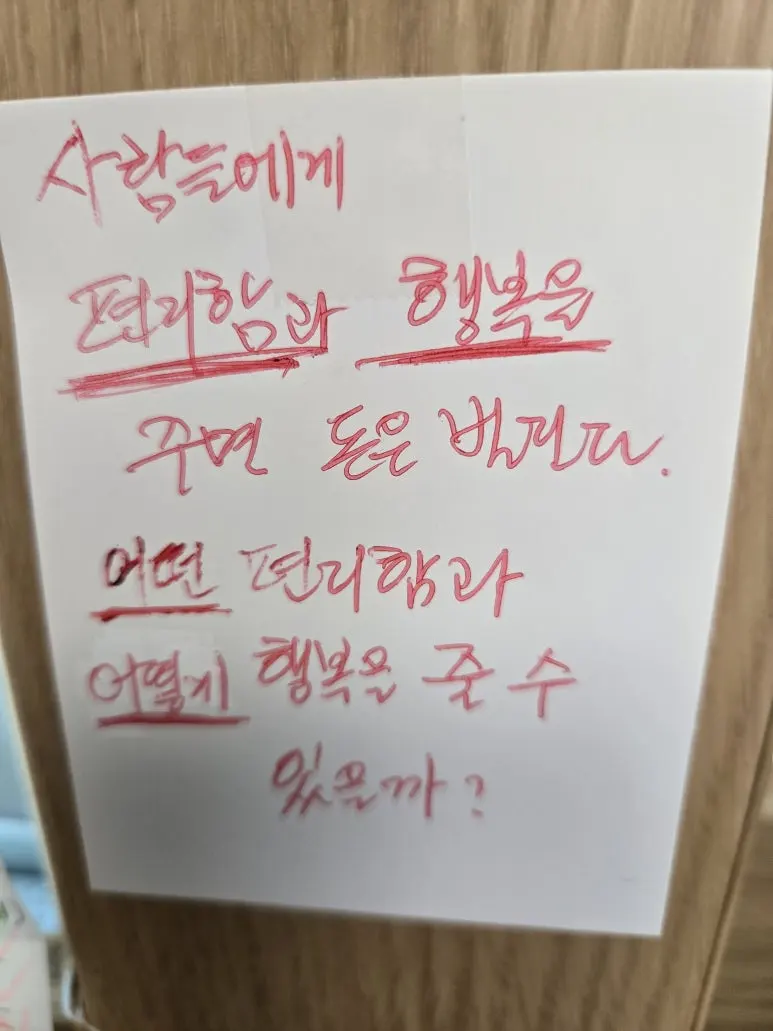 사람들에게
편리함과 행복을
주면 돈은 벌린다.
어떤 편리함과
어떻게 행복을 줄 수
있을까?